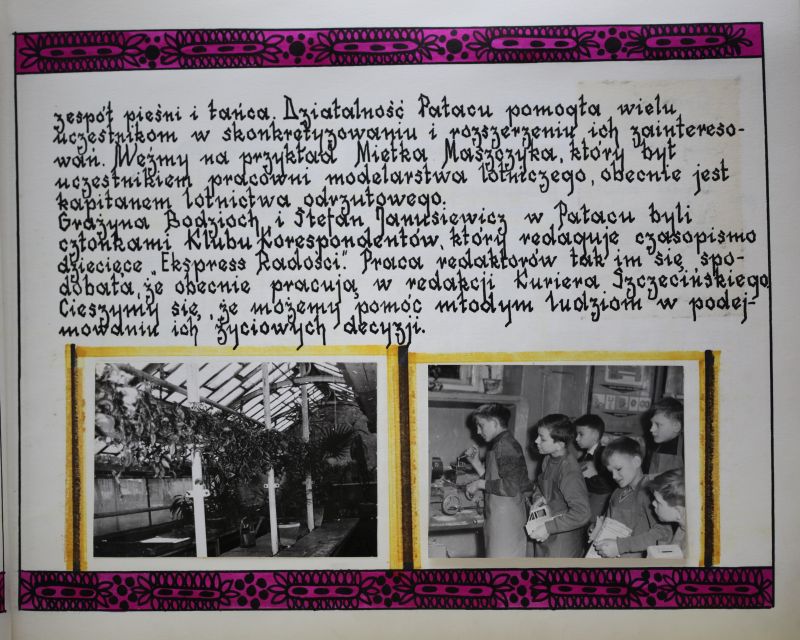 zespół pieśni i tańca. Działalność Pałacu pomogła wielu
uczestnikom w skonkretyzowaniu i rozszerzeniu ich zaintereso-
wań. Weźmy na przykład Mietka Maszczyka, który był
uczestnikiem pracowni modelarstwa lotniczego, obecnie jest
kapitanem lotnictwa odrzutowego.
Grażyna Bodzioch i Stefan Janusiewicz w Pałacu byli
członkami Klubu Korespondentów, który redaguje czasopismo
dziecięce „Ekspress Radości". Praca redaktorów tak im się spo-
dobała, że obecnie pracują w redakcji Kuriera Szczecińskiego.
Cieszymy się, że możemy pomóc młodym ludziom w podej-
mowaniu ich życiowych decyzji.